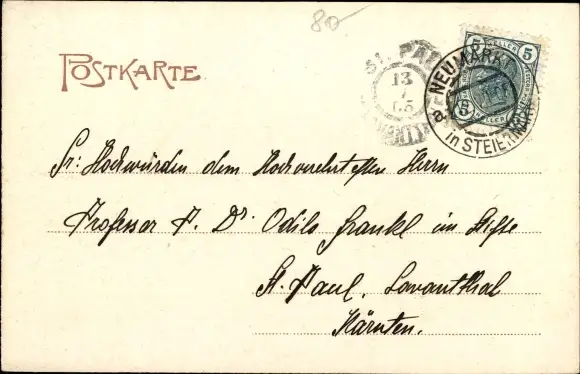 80.-
POSTKARTE
ST. PAUL
13
7
05
5 HELLER 5
NEUMARKT
a
in STEIERMARK
Sr: Hochwürden dem Hochverehrtesten Herrn
Professor P. Dr. Odilo Frankl im Stifte
St. Paul, Lavanthal
Kärnten.